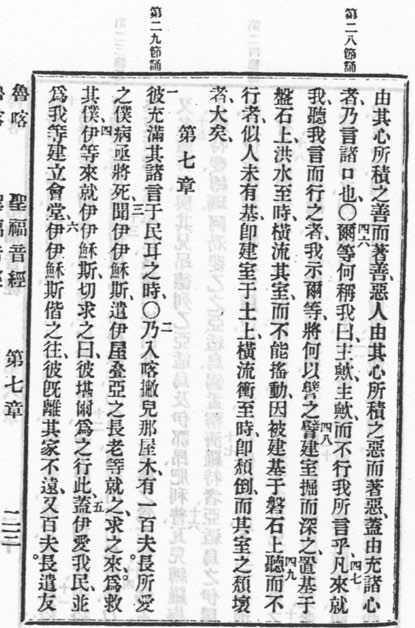 第二八節誦
由其心所積之善而著善、惡人由其心所積之惡而著惡、蓋由充諸心
四六
者、乃言諸口也○爾等何稱我曰主歟、主歟、而不行我所言乎、凡來就
四七
我聽我言而行之者、我示爾等、將何以譬之、譬建室掘而深之、置基于
四八
盤石上、洪水至時、橫流其室、而不能搖動、因被建基于磐石上、聽而不
四九
行者、似人未有基、卽建室于土上、橫流衝至時、卽頹倒、而其室之頹壞
者、大矣、
第七章
第二九節誦
一
彼充滿其諸言于民耳之時、○乃入喀撇兒那屋木、有一百夫長所愛
二
之僕、病亟將死、聞伊伊穌斯、遣伊屋疊亞之長老等、就之、求之來爲救
三
其僕、伊等來就伊伊穌斯、切求之曰、彼堪爾爲之行此、蓋伊愛我民、並
四
五
爲我等建立會堂、伊伊穌斯偕之往、彼旣離其家不遠、又百夫長遣友
六
魯喀 聖福音經 第七章